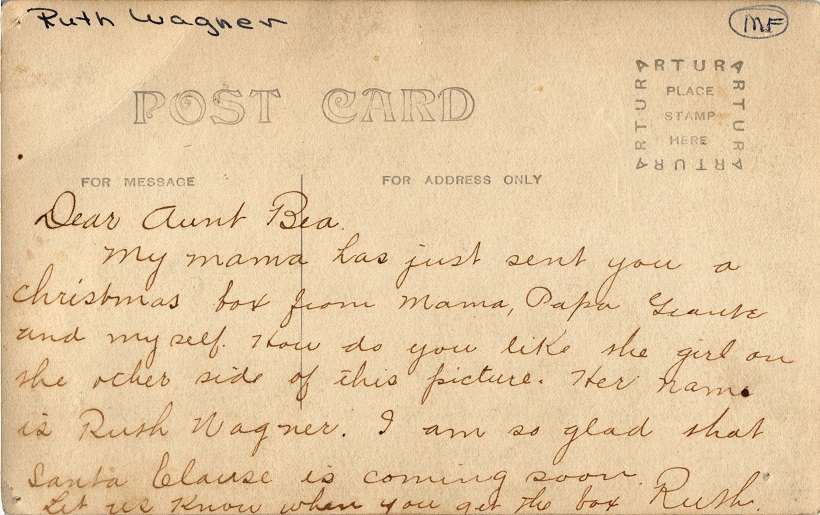 Ruth Wagner
MF
POST CARD
ARTURA
ARTURA
PLACE
STAMP
HERE
ARTURA
ARTURA
FOR MESSAGE
FOR ADDRESS ONLY
Dear Aunt Bea.
My mama has just sent you a
christmas box from Mama, Papa
and myself. How do you like the girl on
the other side of this picture. Her name
is Ruth Wagner. I am so glad that
Santa Clause is coming soon.
Let us know when you get the box Ruth.